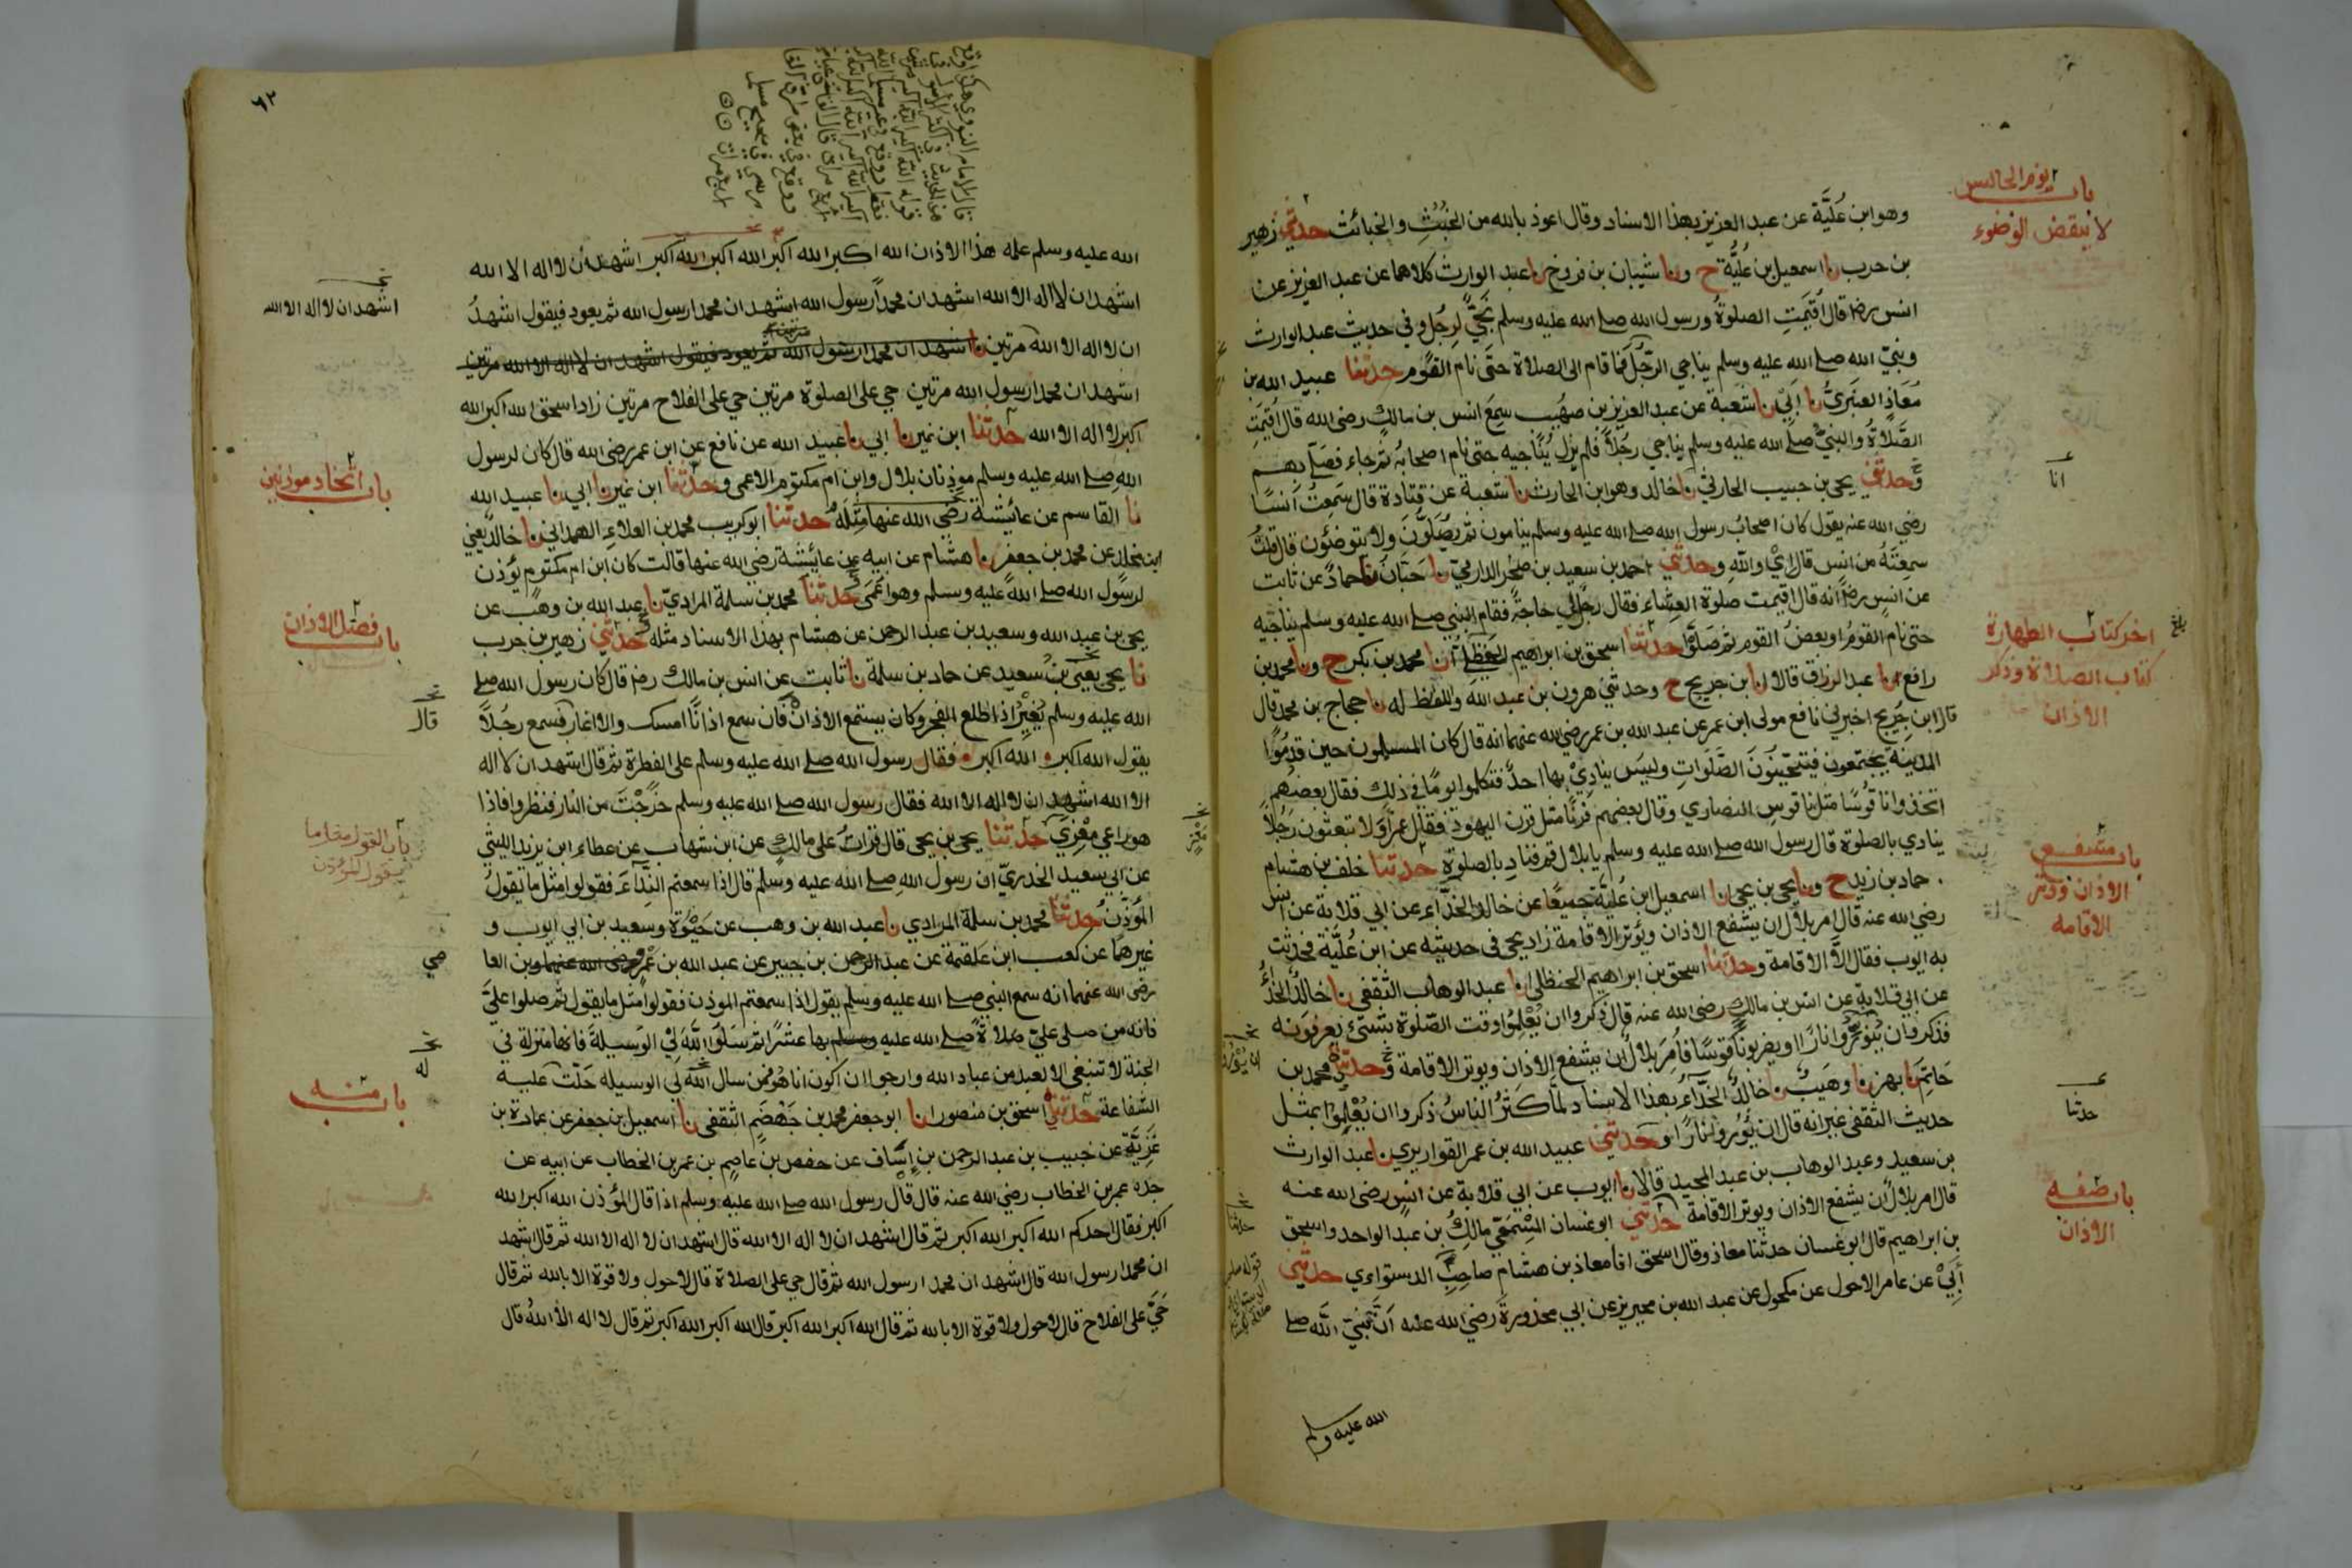 باب نوم الجالس
لا ينقض الوضوء
وهو ابن عُليَّة عن عبد العزيز بهذا الاسناد وقال اعوذ بالله من الخبُثِ والخبائث حدثني زهير
بن حرب نا اسمعيل بن عُليَّة ح ونا شيبان بن فروخ نا عبد الوارث كلاهما عن عبد العزيز عن
انس رضـ قال اُقيمَتِ الصلوةُ ورسول الله صلے الله عليه وسلم نَجِيٌّ لِرجُلٍ وفي حديث عبد الوارث
ونبيّ الله صلے الله عليه وسلم يناجي الرّجُلَ فما قام الى الصلاة حتَى نام القوم حدثنا عبيد الله بن
مُعَاذٍ العنبَريُّ نا اَبِي نا شعبة عن عبد العزيز بن صهَيب سمِعَ انس بن مالكٍ رضى الله قال اُقيمَتِ
الصَّلاةُ والنبيُّ صلے الله عليه وسلم يناجي رجُلاً فلم يزل يُنَاجيه حتى نام اصحابهُ ثم جاء فصَلّى بهم
وحدثني يحيى بن حبيب الحارثي نا خالد وهو ابن الحارث نا شعبة عن قتادة قال سَمِعتُ اَنسًا
انا
رضي الله عنه يقول كان اصحابُ رسول الله صلے الله عليه وسلم ينامون ثم يُصَلُّونَ ولا يتوضئون قال قلتُ
سمِعْتَهُ من انس قال اِيْ والله وحدثني احمد بن سعيد بن صخْرٍ الدارميّ نا حَبّانُ نا حمادٌ عن ثابت
عن انسٍ رضـ انه قال اقيمت صلوة العشاء فقال رجُل لي حاجةٌ فقام النبي صلے الله عليه وسلم يناجيه
حتى نام القومُ او بعضُ القوم ثم صَلّوا حدثنا اسحق بن ابراهيم الحنظلي انا محمد بن بكر ح ونا محمد بن
اخر كتاب الطهارة
كتاب الصلاة وذكر
الاذان
رافع نا عبد الرزاق قالا انا ابن جريج ح وحدثني هرون بن عبد الله واللفظ له نا حجاج بن محمد قال
قال ابن جُرَيج اخبرني نافع مولى ابن عمر عن عبد الله بن عمر رضي الله عنهما انه قال كان المسلمون حين قدمُوا
المدينة يجتَمعون فيتَحيّنُونَ الصَّلَواتِ وليسَ ينادِيْ بها احدٌ فتكلموا يومًا في ذلِك فقال بعضُهم
اتخذوا ناقوسًا مثل ناقوس النصارى وقال بعضهم قرنًا مثل قرن اليهود فقال عمر اَوَلا تبعثون رَجُلاً
ينادي بالصلوة قال رسول الله صلے الله عليه وسلم يا بلال قم فنادِ بالصلوة حدثنا خلف بن هشام
باب شفع
الاذان وذتر
الاقامه
حماد بن زيد ح ونا يحيى بن يحيى انا اسمعيل ابن عُليَّة جميعًا عن خالد الحذَّاء عن ابي قلابة عن انس
رضي الله عنه قال امر بلالٌ ان يشفع الاذان ويُوتر الاقامة زاد يحيى في حديثه عن ابن عُليَّة فحدثت
به ايوب فقال الّا الاقامة وحدثنا اسحق بن ابراهيم الحنظلي انا عبد الوهاب الثقفي نا خالدٌ الحذاءُ
عن ابي قلابة عن انس بن مالكٍ رضي الله عنه قال ذكروا ان يُعْلِمُوا وقت الصَّلوة بشئ يعرفونه
فذكروا ان يُنوّروا نارًا او يضربوا ناقوسًا فاُمِرَ بلالٌ ان يشفع الاذان ويوتر الاقامة وحدثني محمد بن
حَاتِمٍ نا بهز نا وهَيبٌ نا خالدٌ الحَذّاء بهذا الاسناد لمّا كَثُرَ الناسُ ذكروا ان يُعْلِمُوا بمثل
حدثنا
حديث الثقفي غير انه قال ان يُوْروا نارًا وحدثني عبيد الله بن عمر القواريري نا عبد الوارث
بن سعيد وعبد الوهاب بن عبد المجيد قالا نا ايوب عن ابي قلابة عن انسٍ رضي الله عنه
باب صفه
الاذان
قال امر بلالٌ ان يشفع الاذان ويوتر الاقامة حدثني ابو غسان المِسْمَعِيّ مالكُ بن عبد الواحد واسحق
بن ابراهيم قال ابو غسان حدثنا معاذ وقال اسحق انا معاذ بن هشام صاحِبِ الدستواءي حدثني
اَبِيْ عن عامر الاحول عن مكحول عن عبد الله بن محيريز عن ابي محذورة رضي الله عنه اَنّ نبيّ الله صلے
الله عليه وسلم
٦٢
قال الامام النووي هكذا وقع
الله عليه وسلم علمه هذا الاذان الله اكبر الله اكبر الله اكبر الله اكبر اشهد ان لا اله الا الله
اشهد ان لا اله الا الله اشهد ان محمدًا رسول الله اشهد ان محمدا رسول الله ثم يعود فيقول اشهدُ
اشهد ان لا اله الا الله
ان لا اله الا الله مرتين اشهد ان محمدا رسول الله ثم يعود فيقول اشهد ان لا اله الا الله مرتين
اشهد ان محمدا رسول الله مرتين حي على الصلوة مرتين حي على الفلاح مرتين زاد اسحق الله اكبر الله
اكبر لا اله الا الله حدثنا ابن نمير نا ابي نا عبيد الله عن نافع عن ابن عمر رضى الله قال كان لرسول
باب اتخاد موذنين
الله صلے الله عليه وسلم موذنان بلال وابن ام مكتوم الاعمى وحدثنا ابن نمير نا ابي نا عبيد الله
نا القاسم عن عائيشة رضي الله عنها مثلَهُ حدثنا ابو كريب محمد بن العلاء الهمداني نا خالد يعني
ابن مخلد عن محمد بن جعفر نا هشام عن ابيه عن عائيشة رضي الله عنها قالت كان ابن ام مكتوم يؤذن
لرسول الله صلے الله عليه وسلم وهو اعمَى وحدثنا محمد بن سلمة المراديّ نا عبد الله بن وهب عن
باب فضل الاذان
يحيى بن عبد الله وسعيد بن عبد الرحمن عن هشام بهذا الاسناد مثله وحدثني زهير بن حرب
نا يحيى يعني بن سعيد عن حماد بن سلمة نا ثابت عن انس بن مالك رضـ قال كان رسول الله صلے
الله عليه وسلم يُغِيْرُ اذا طلع الفجر وكان يستمع الاذانْ فان سمع اذانًا امسك والا اغار فسمع رجُلاً
قال
يقول الله اكبر الله اكبر فقال رسول الله صلے الله عليه وسلم على الفطرة ثم قال اشهد ان لا اله
الا الله اشهد ان لا اله الا الله فقال رسول الله صلے الله عليه وسلم خَرَجْتَ من النار فنظروا فاذا
هو راعي مِعْزِي حدثنا يحيى بن يحيى قال قراتُ على مالكٍ عن ابن شهاب عن عطاء ابن يزيد الليثي
باب القول مثل ما
يقول المؤذن
عن ابي سعيد الخدريّ ان رسول الله صلے الله عليه وسلم قال اذا سمعتم النِّدَاءَ فقولوا مثل ما يقولُ
المؤذنُ حدثنا محمد بن سلمة المرادي نا عبد الله بن وهب عن حَيْوَة وسعيد بن ابي ايوب و
غيرهما عن كعب ابن علقمة عن عبد الرحمن بن جبير عن عبد الله بن عَمْرٍو رضى الله عنهما وبن العا
صي
رضى الله عنهما انه سمع النبي صلے الله عليه وسلم يقول اذا سمعتم الموذن فقولوا مثل ما يقول ثم صلوا علَيَّ
فانه من صلى عليّ صلاةً صلے الله عليه وسلم بها عشرًا ثم سَلوُا اللّهَ لِي الوَسِيلَةَ فانها منزلة في
له
الجنة لا تنبغي الا لعبد من عباد الله وارجوا ان اكون انا هُو فمن سال اللّه لي الوسيله حَلّت عليه
باب منه
الشفاعة حدثني اسحق بن منصور انا ابو جعفر محمد بن جَهْضَمٍ الثقفى نا اسمعيل بن جعفر عن عمارة بن
غَزِيَّةَ عن خبيب بن عبد الرحمن بن اِسَاف عن حفص بن عاصِمٍ بن عمر بن الخطاب عن ابيه عن
جده عمر بن الخطاب رضي الله عنه قال قال رسول الله صلے الله عليه وسلم اذا قال المؤذن الله اكبر الله
اكبر فقال احدكم الله اكبر الله اكبر ثم قال اشهد ان لا اله الا الله قال اشهد ان لا اله الا الله ثم قال اشهد
ان محمدا رسول الله قال اشهد ان محمدا رسول الله ثم قال حي على الصلاة قال لا حول ولا قوة الا بالله ثم قال
حَيَّ على الفلاح قال لا حول ولا قوة الا بالله ثم قال الله اكبر الله اكبر قال الله اكبر الله اكبر ثم قال لا اله الا اللهُ قال